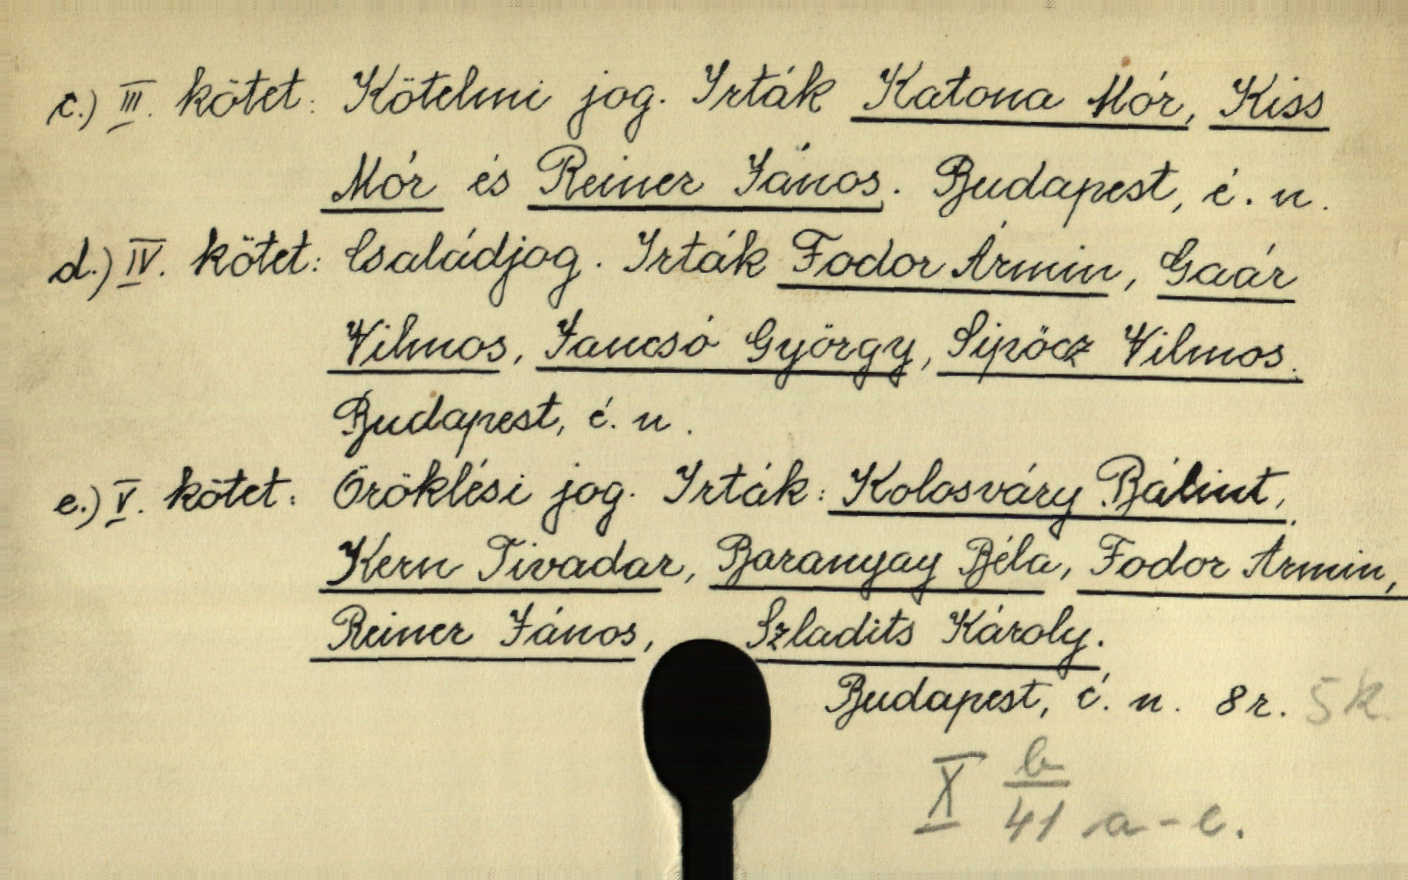 c.) III. kötet: Kötelmi jog. Irták Katona Mór, Kiss
Mór és Reiner János. Budapest, é. n.
d.) IV. kötet: Családjog. Irták Fodor Ármin, Gaár
Vilmos, Jancsó György, Sipőcz Vilmos.
Budapest, é. n.
e.) V. kötet: Öröklési jog. Irták: Kolosváry Bálint,
Kern Tivadar, Baranyay Béla, Fodor Ármin,
Reiner János, Szladits Károly.
Budapest, é. n. 8 r. 5 k.
X b/41 a-e.